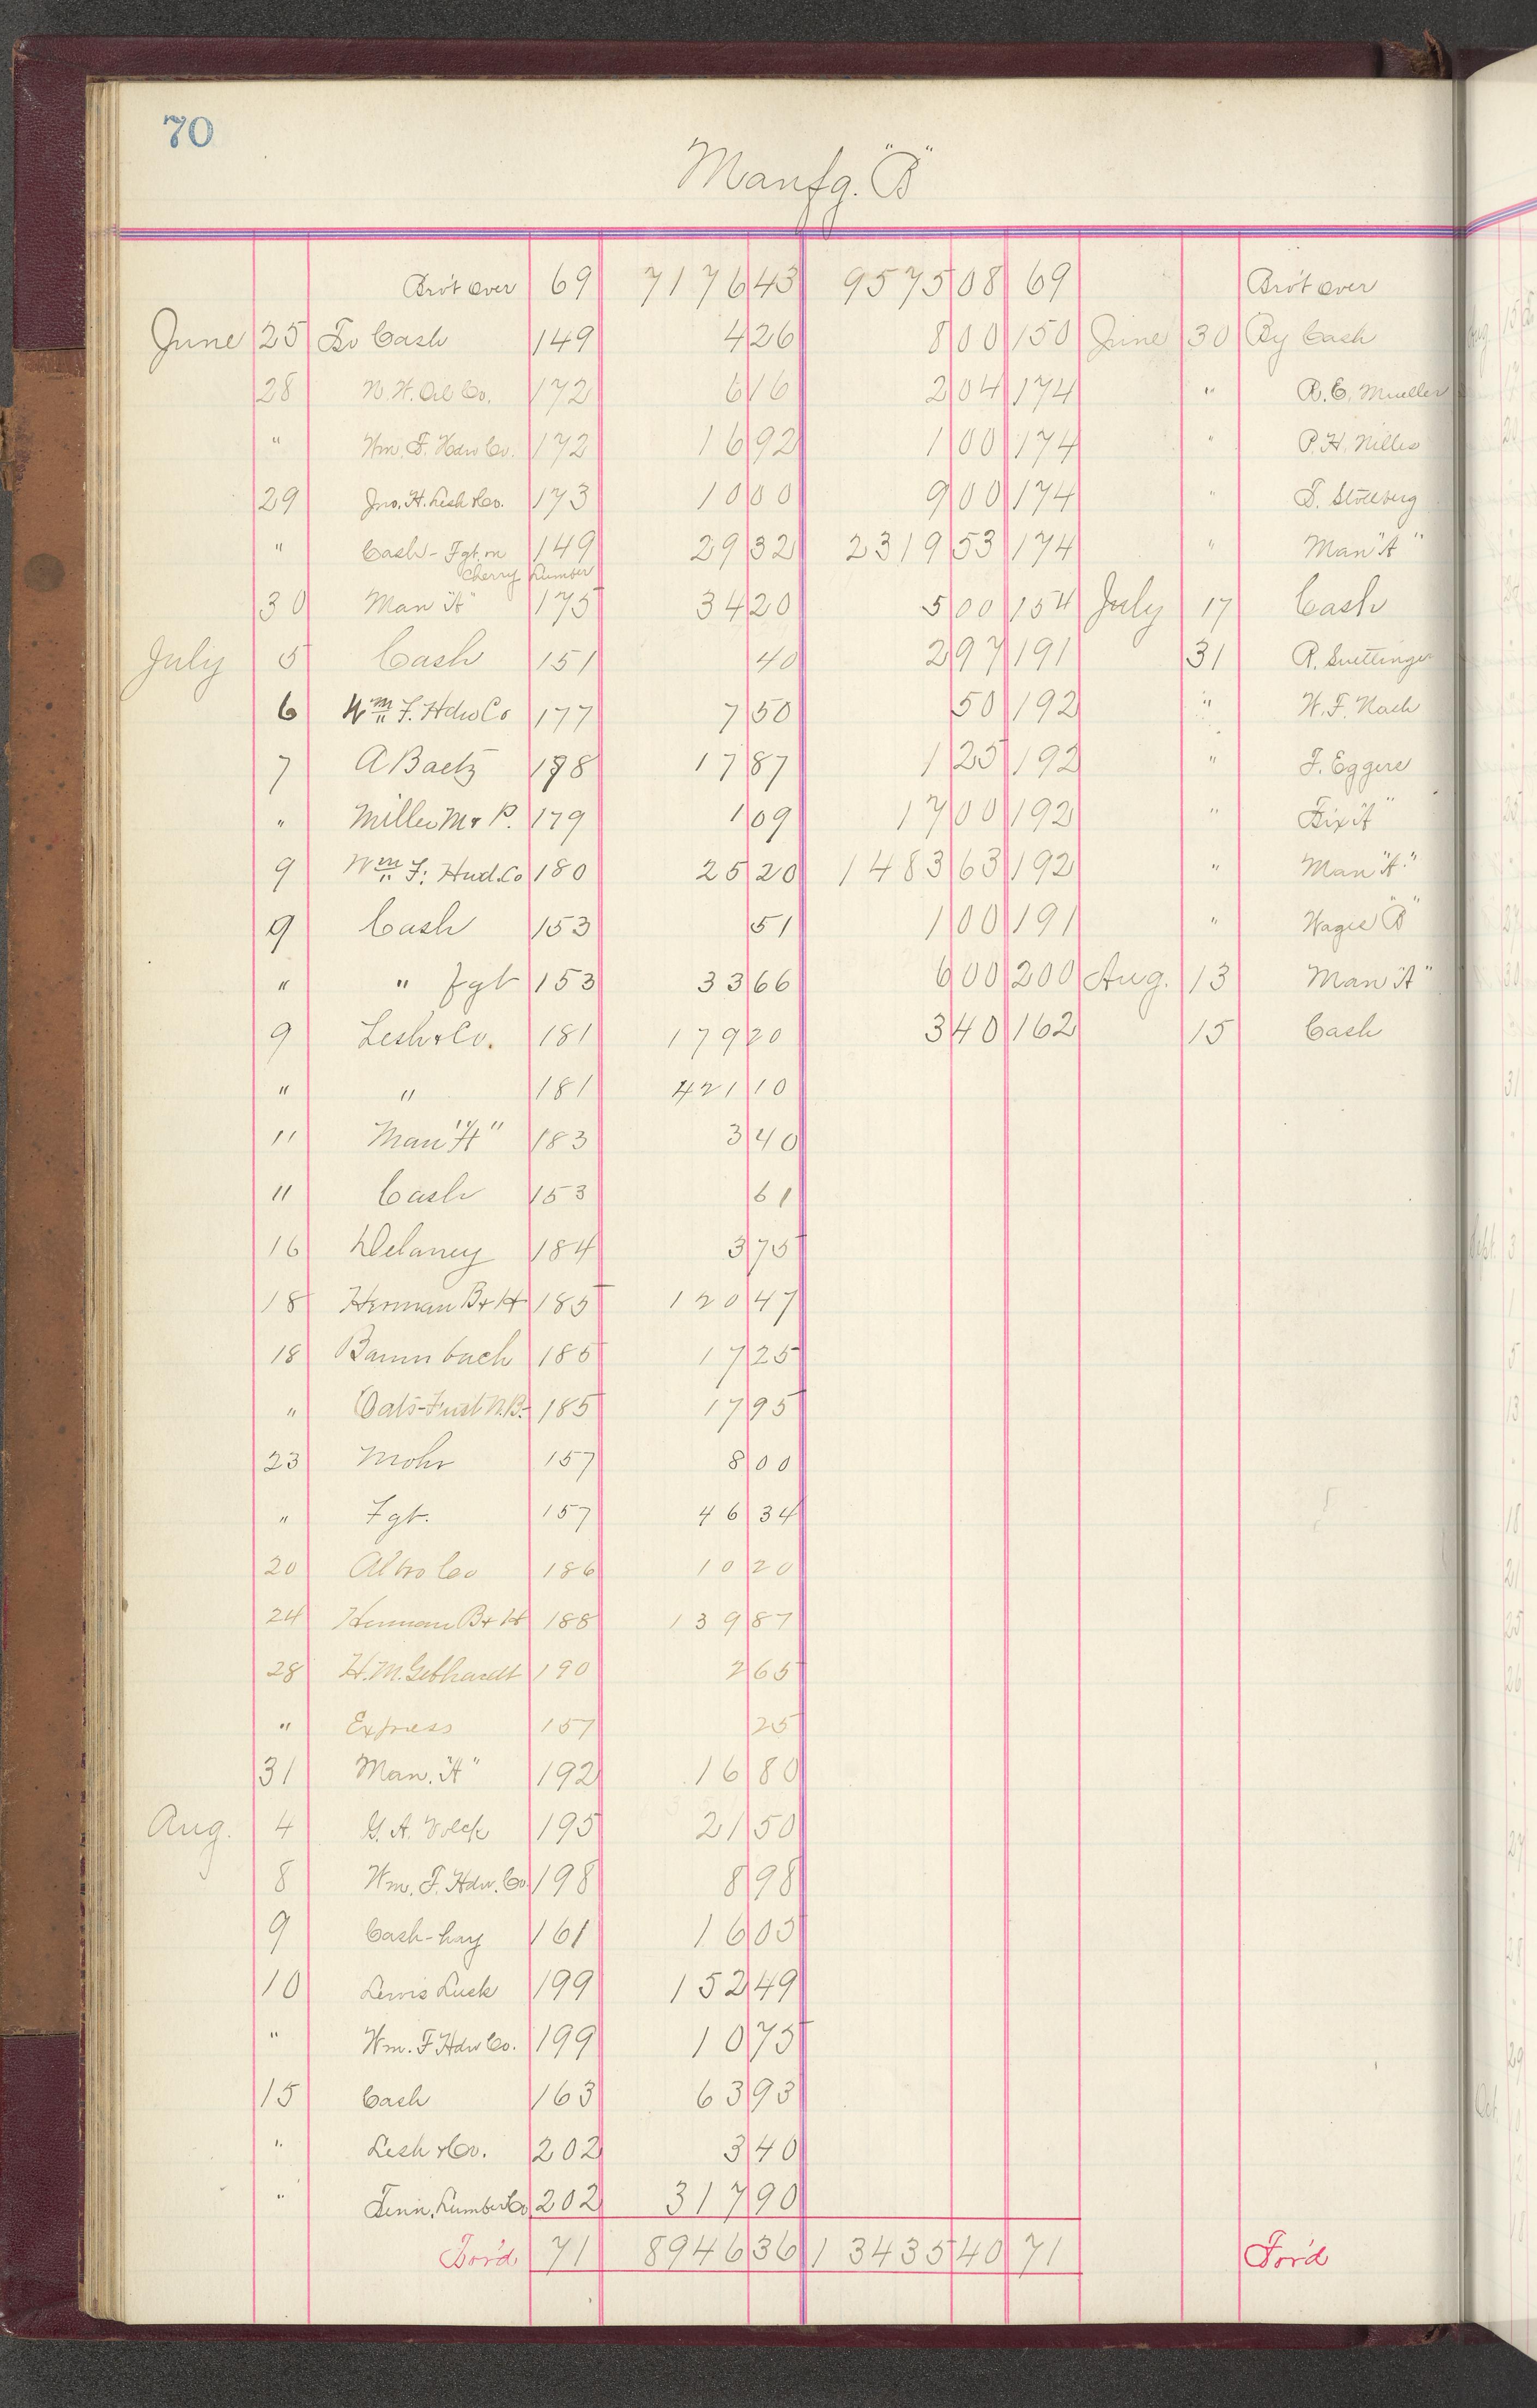 70
Manfg. "B"
Bro't over 69 7176 43 9575 08 69 Bro't over
June 25 To Cash 149 4 26 8 00 150 June 30 By Cash
28 W. H. Oil Co. 172 6 16 2 04 174 " R. C. Mueller
" Wm. F. Hdw Co. 172 16 92 1 00 174 " P. H. Nilles
29 Jno. H. Lesh & Co. 173 10 00 9 00 174 " D. Stollberg
" Cash - Fgt. on 149 29 32 2319 53 174 " Man "A"
Cherry Lumber
30 Man "A" 175 34 20 5 00 154 July 17 Cash
July 5 Cash 151 40 2 97 191 31 R. Suettinger
6 Wm F. Hdw Co 177 7 50 50 192 " W. F. Nach
7 A Baetz 178 17 87 1 25 192 " J. Eggere
" Miller M & P. 179 1 09 17 00 192 " Fix "A"
9 Wm F. Hwd. Co 180 25 20 1483 63 192 " Man "A"
9 Cash 153 51 1 00 191 " Wages "B"
" " Fgt 153 33 66 6 00 200 Aug. 13 Man "A"
9 Lesh & Co. 181 179 20 3 40 162 15 Cash
" " 181 421 10
11 Man "A" 183 3 40
11 Cash 153 61
16 Delaney 184 3 75
18 Herman B & H 185 120 47
18 Baumbach 185 17 25
" Oats - Fust N.B. 185 17 95
23 Mohr 157 8 00
" Fgt. 157 46 34
20 Albro Co 186 10 20
24 Herman B & H 188 139 87
28 H. M. Gebhardt 190 2 65
" Express 157 25
31 Man. "A" 192 16 80
Aug. 4 G. A. Volck 195 21 50
8 Wm. F. Hdw. Co. 198 8 98
9 Cash - hay 161 16 05
10 Lewis Luck 199 152 49
" Wm. F Hdw Co. 199 10 75
15 Cash 163 63 93
" Lesh & Co. 202 3 40
" Tenn. Lumber Co 202 317 90
For'd 71 8946 36 13435 40 71 For'd